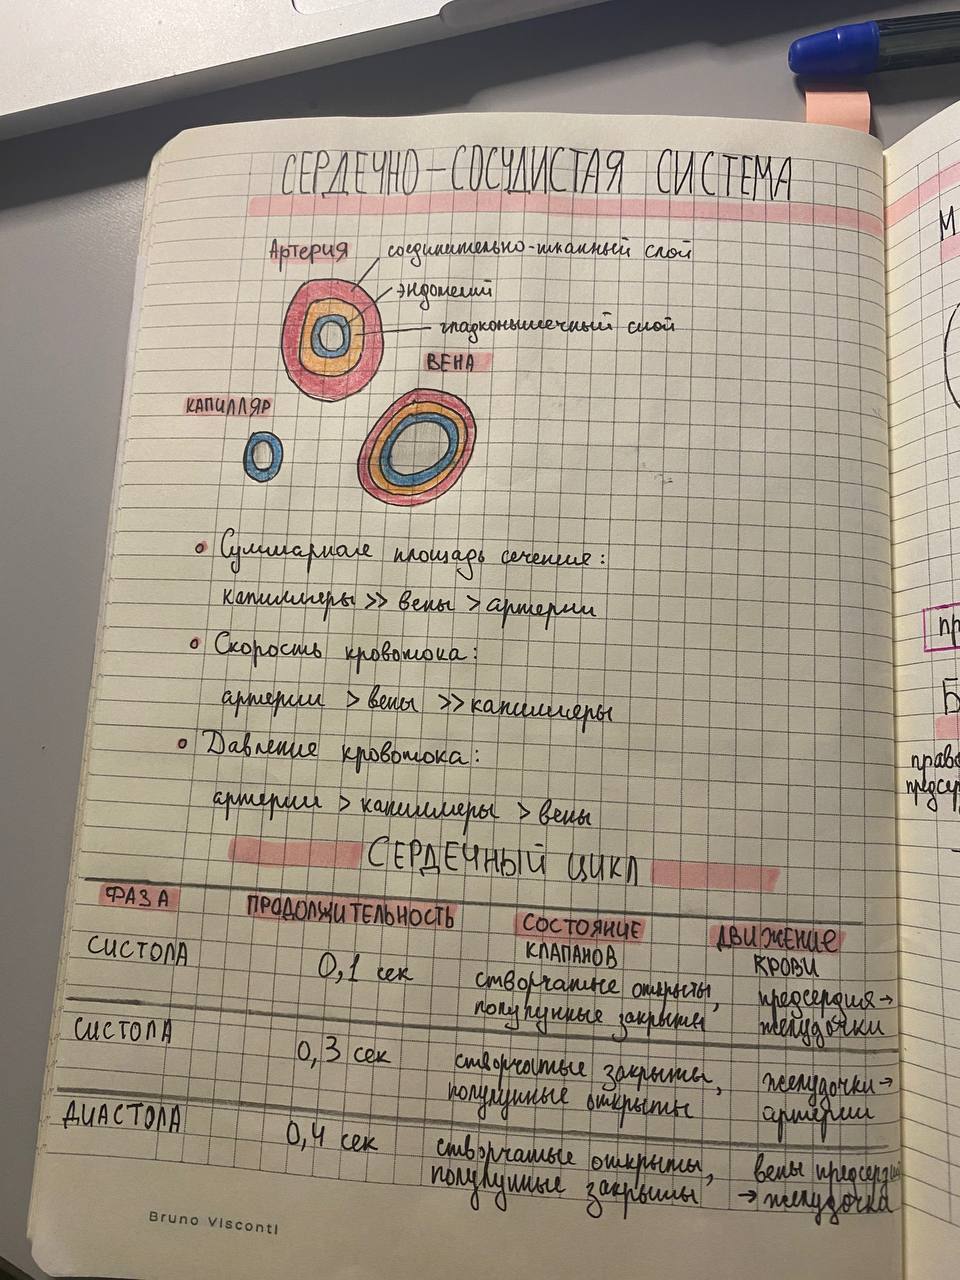 СЕРДЕЧНО-СОСУДИСТАЯ СИСТЕМА
Артерия
соединительно-тканный слой
эндотелий
гладкомышечный слой
ВЕНА
КАПИЛЛЯР
Суммарная площадь сечения:
капилляры >> вены > артерии
Скорость кровотока:
артерии > вены >> капилляры
Давление кровотока:
артерии > капилляры > вены
СЕРДЕЧНЫЙ ЦИКЛ
ФАЗА ПРОДОЛЖИТЕЛЬНОСТЬ СОСТОЯНИЕ ДВИЖЕНИЕ
КЛАПАНОВ КРОВИ
СИСТОЛА 0,1 сек створчатые открыты, предсердия→
полулунные закрыты желудочки
СИСТОЛА 0,3 сек створчатые закрыты, желудочки→
полулунные открыты артерии
ДИАСТОЛА 0,4 сек створчатые открыты, вены
полулунные закрыты →желудочка
Bruno Visconti
М
пр
Б